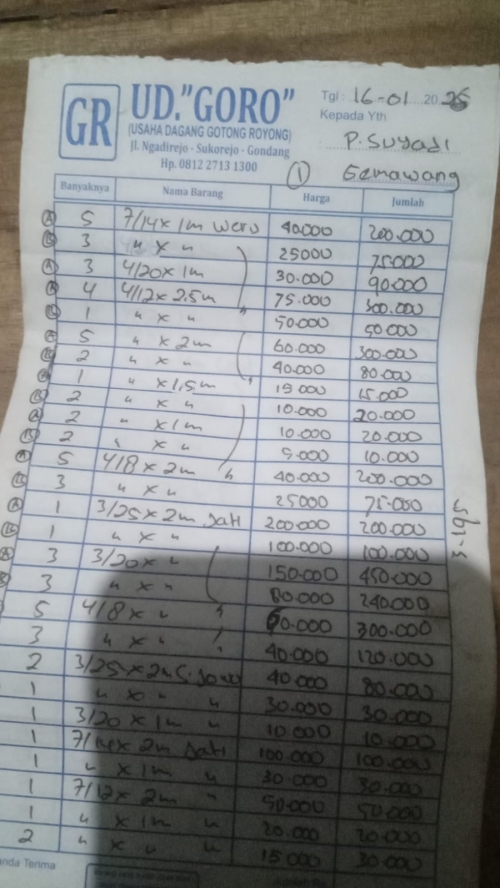 GR
UD."GORO"
(USAHA DAGANG GOTONG ROYONG)
Jl. Ngadirejo - Sukorejo - Gondang
Hp. 0812 2713 1300
Tgl : 16-01 2025
Kepada Yth
P. Suyadi
Gemawang
1
Banyaknya Nama Barang Harga Jumlah
A 5 7/14 x 1m Weru 40.000 200.000
B 3 " x " 25000 75.000
A 3 4/20 x 1m 30.000 90.000
A 4 4/12 x 2.5m 75.000 300.000
B 1 " x " " 50.000 50.000
A 5 " x 2m 60.000 300.000
B 2 " x " 40.000 80.000
A 1 " x 1,5m 15.000 15.000
B 2 " x " 10.000 20.000
A 2 " x 1m 10.000 20.000
B 2 " x " 5.000 10.000
A 5 4/8 x 2m " 40.000 200.000
B 3 " x " 25000 75.000
A 1 3/25 x 2m Jati 200.000 200.000
B 1 " x " 100.000 100.000
A 3 3/20 x " 150.000 450.000
3 " x " 80.000 240.000
5 4/8 x " " 60.000 300.000
3 " x " " 40.000 120.000
2 3/25 x 2m 40.000 80.000
1 " x " " 30.000 30.000
1 3/20 x 1m " 10.000 10.000
1 7/14 x 2m Jati 100.000 100.000
1 " x 1m " 30.000 30.000
1 7/12 x 2m " 50.000 50.000
1 " x 1m " 20.000 20.000
2 " x " " 15.000 30.000
anda Terima